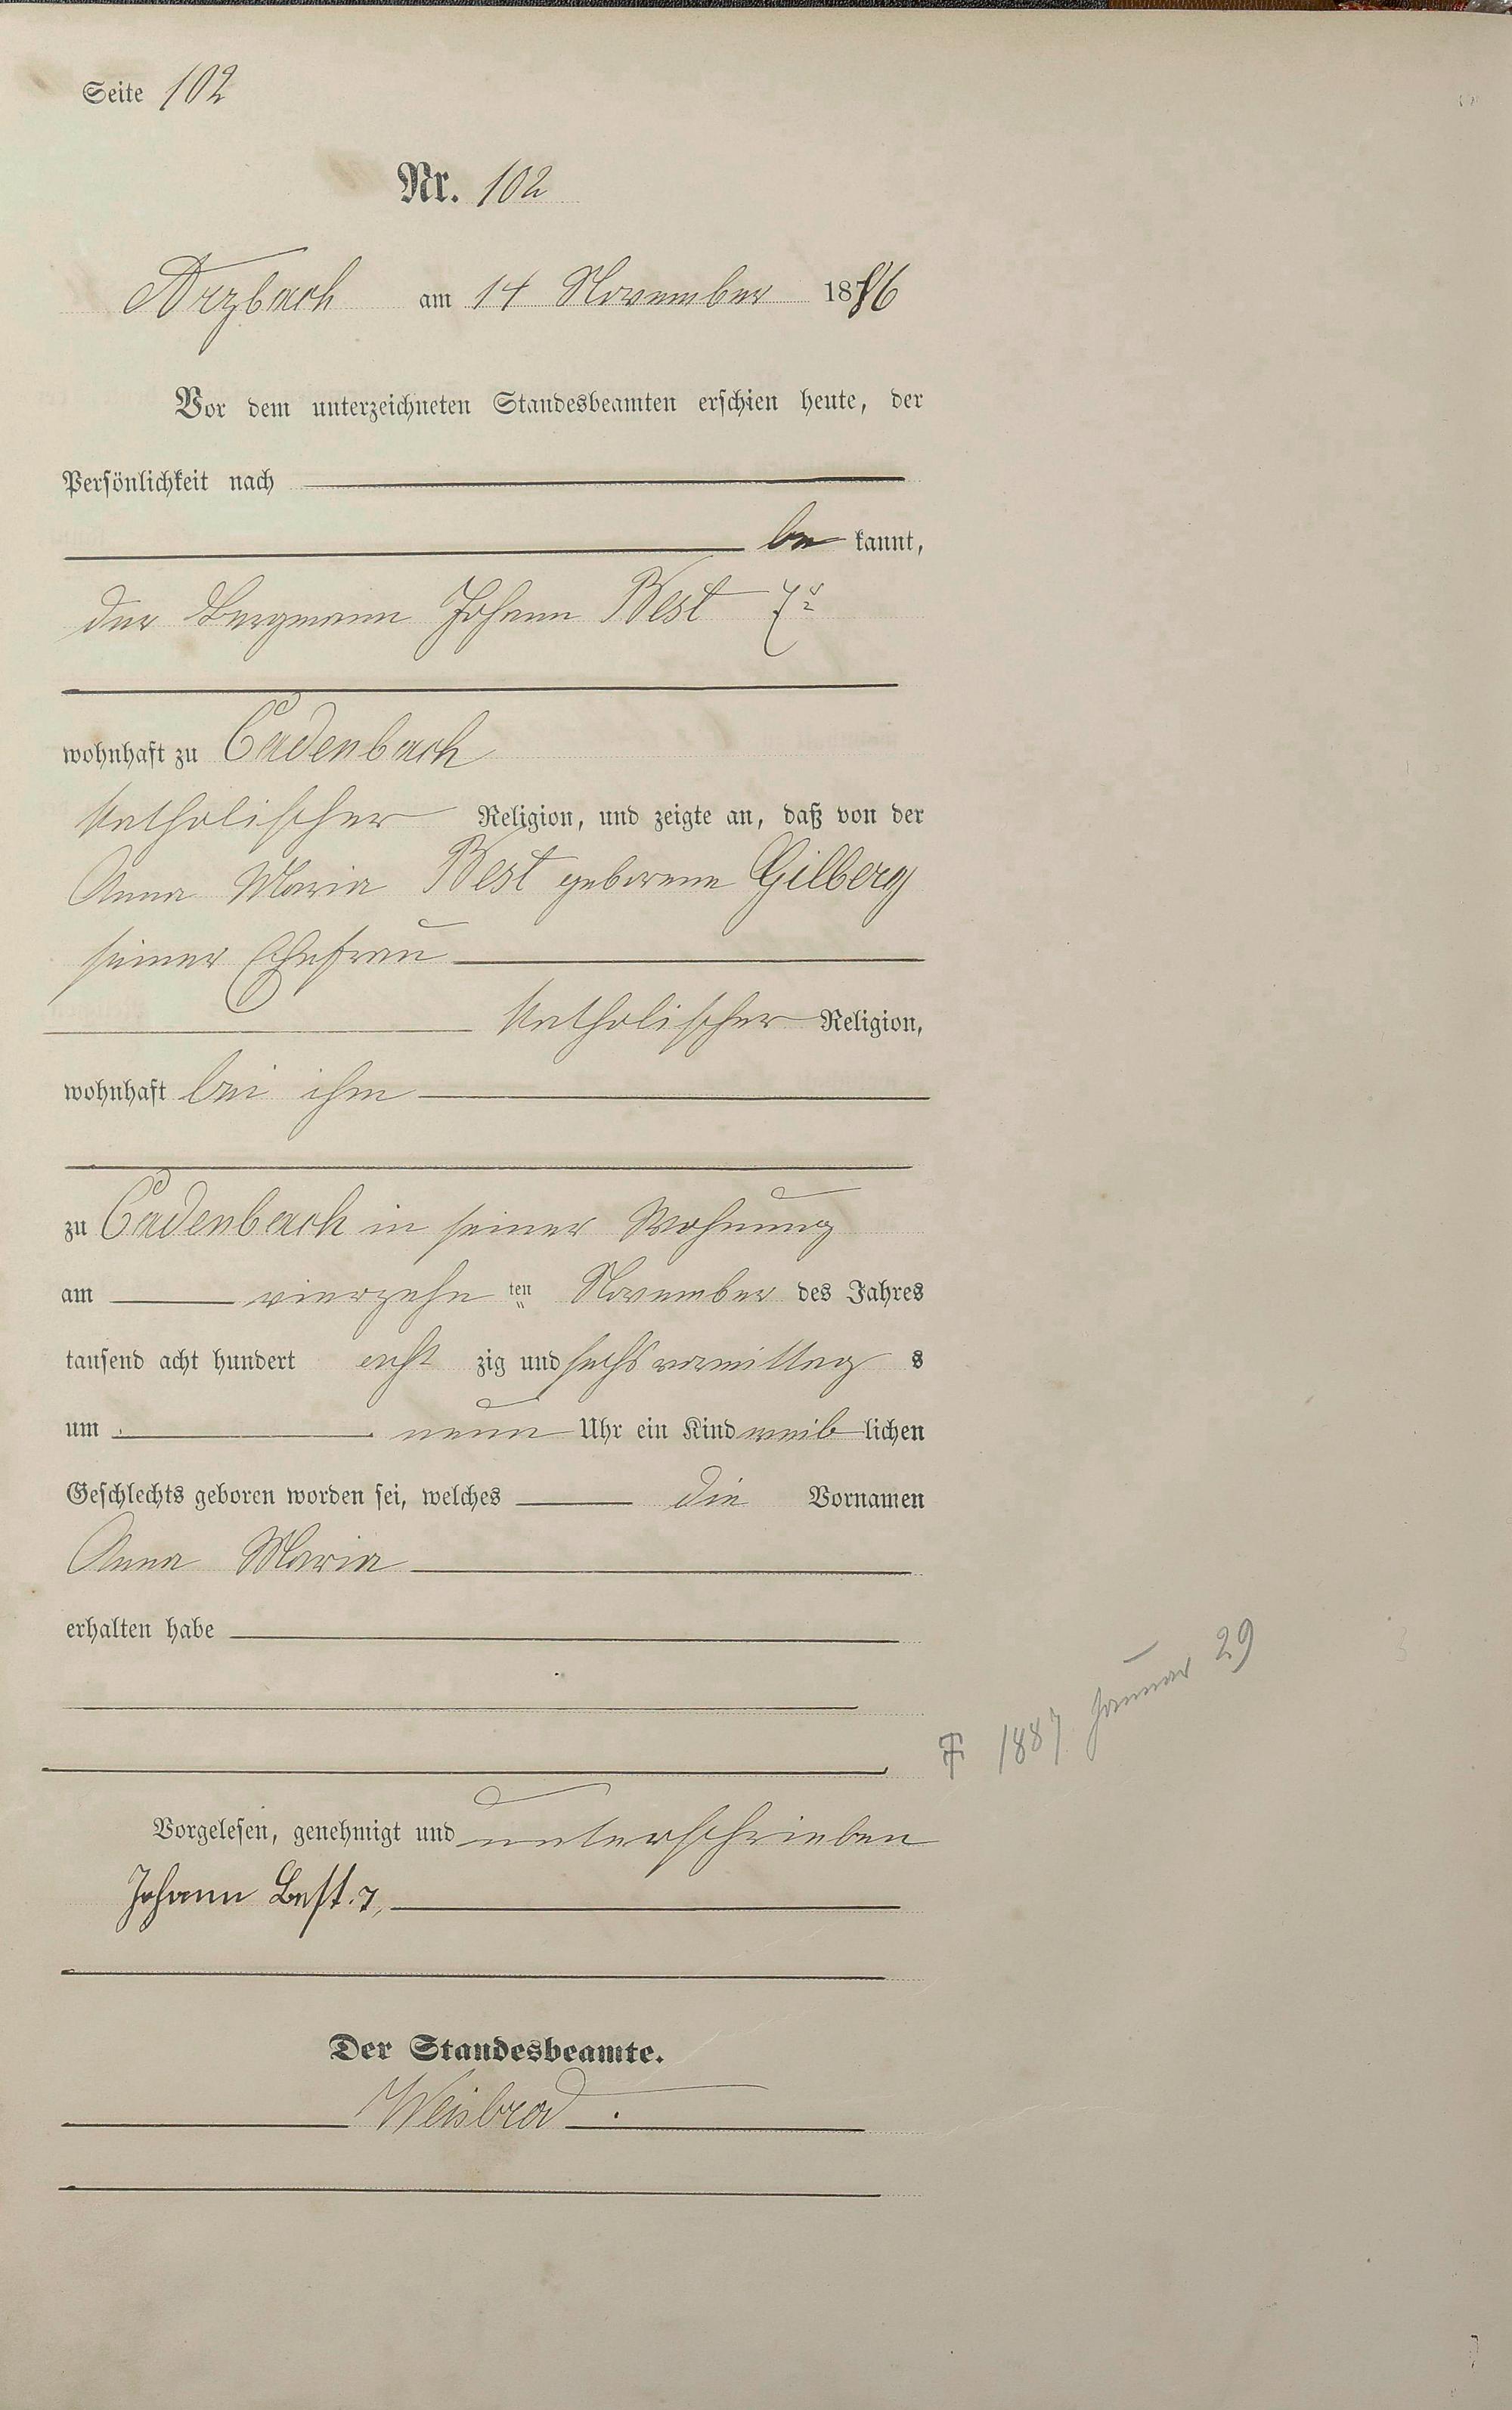 Seite 102
Nr. 102
Arzbach am 14 November 1886
Vor dem unterzeichneten Standesbeamten erschien heute, der
Persönlichkeit nach
be kannt,
der Bergmann Johann Best 7r
wohnhaft zu Cadenbach
katholischer Religion, und zeigte an, daß von der
Anna Maria Best geborene Gilberg
seiner Ehefrau
katholischer Religion,
wohnhaft bei ihm
zu Cadenbach in seiner Wohnung
am vierzehn ten November des Jahres
tausend acht hundert acht zig und sechs vormittag s
um neun Uhr ein Kind weib lichen
Geschlechts geboren worden sei, welches die Vornamen
Anna Maria
erhalten habe
† 1887 Januar 29
Vorgelesen, genehmigt und unterschrieben
Johann Best. 7,
Der Standesbeamte.
Weisbrod